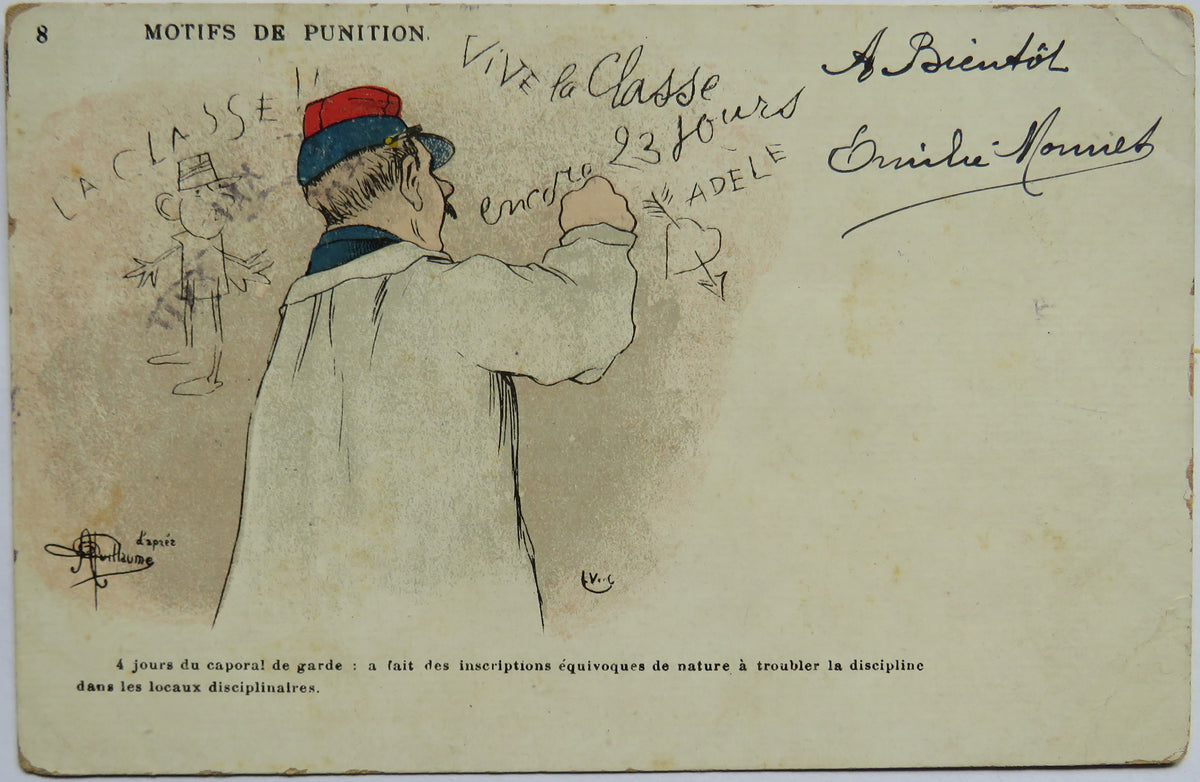 8
MOTIFS DE PUNITION.
LA CLASSE !!
VIVE la Classe
encore 23 Jours
ADÈLE
A Bientôt
Emilie Monnet
d'après
AGuillaume
4 jours du caporal de garde : a fait des inscriptions équivoques de nature à troubler la discipline
dans les locaux disciplinaires.